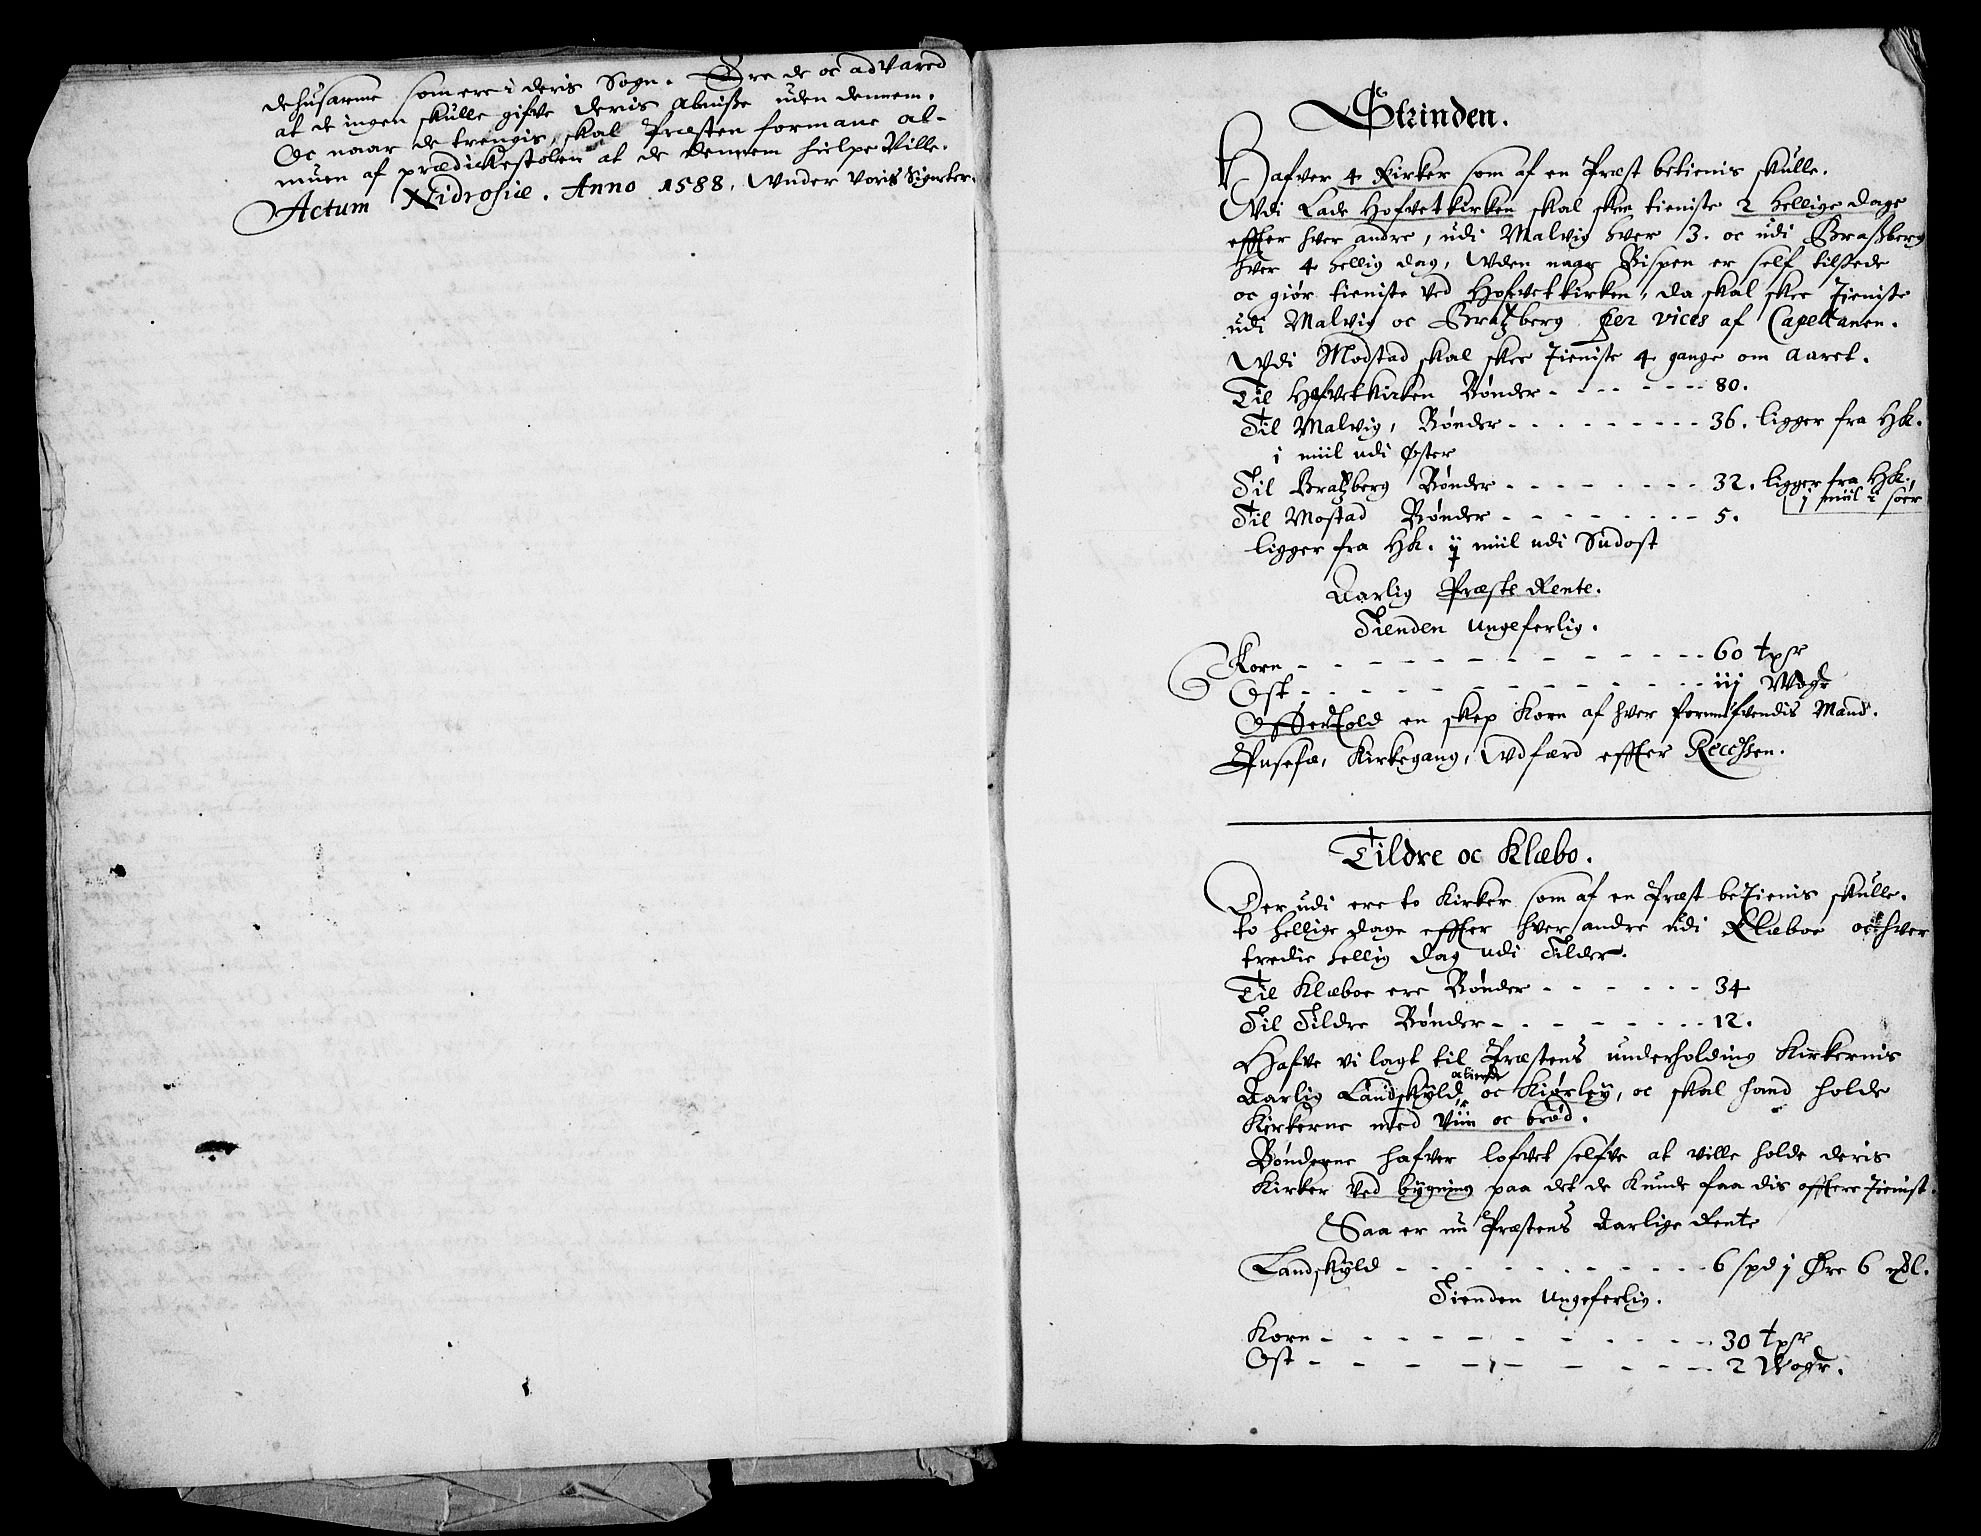 dehusarme som ere i deris Sogn. Ere de oc advared
at de ingen skulle gifve deris Almisse uden dennem.
Oc naar de trengis, skal Præsten formane al-
muen af prædickestolen at de dennem hielpe Ville.
Actum Nidrosiæ. Anno 1588. Wnder voris Signeter.
Strinden.
Hafver 4 Kirker som af en Præst betienis skulle.
Wdi Lade Hofvetkirken skal skee tieniste 2 hellige dage
effter hver andre, udi Malvig hver 3. oc udi Braßberg
hver 4 hellig dag, Wden naar Bispen er self tilstede
oc giør tieniste ved Hofvetkirken, da skal skee Tieniste
udi Malvig oc Bratzberg per vices af Capellanen.
Wdi Modstad skal skee Tieniste 4 gange om aaret.
Til Hofvetkirken Bønder - - - - - 80.
Til Malvig, Bønder - - - - - - - 36. ligger fra Hk.
j miil udi Øster
Til Bratzberg Bønder - - - - - - 32. ligger fra Hk.
j miil i søer
Til Mostad Bønder - - - - - - 5.
ligger fra Hk. ij miil udi Sudost
Aarlig Præste Rente.
Tienden ungeferlig.
Korn - - - - - - - - - - 60 tpsr
Ost - - - - - - - - - - iij Wogr
Offertold en skep Korn af hver formufvendis Mand.
Pusefæ, Kirkegang, Wdfærd effter Recessen.
Tildre oc Klæbo.
Der udi ere to Kirker som af en Præst beTienis skulle.
to hellige dage effter hver andre udi Klæboe oc hver
tredie hellig dag udi Tilder.
Til Klæboe ere Bønder - - - - - 34
Til Tildre Bønder - - - - - - 12.
Hafve vi lagt til Præstens underholding Kirkernis
Aarlig Landskyld, oc Kiørley, oc skal hand holde
Kirkerne med Viin oc brød.
Bønderne hafver lofvet selfve at ville holde deris
Kirker ved bygning paa det de kunde faa dis offtere Tienist.
Saa er nu Præstens Aarlige Rente
Landskyld - - - - - - - - 6 spd j Øre 6 ℔l.
Tienden Ungeferlig.
Korn - - - - - - - - - 30 tpsr
Ost - - - - - - - - - 2 Wogr.